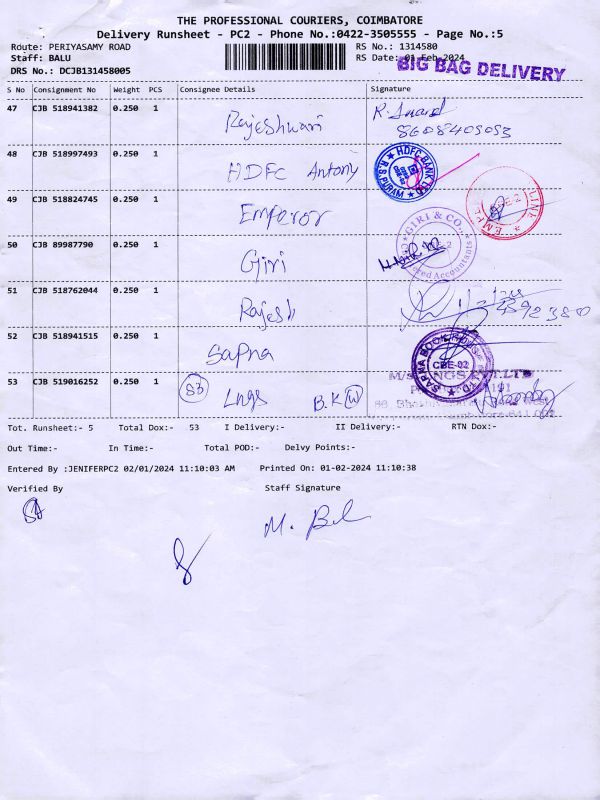 THE PROFESSIONAL COURIERS, COIMBATORE
Delivery Runsheet - PC2 - Phone No.:0422-3505555 - Page No.:5
Route: PERIYASAMY ROAD RS No.: 1314580
Staff: BALU RS Date: 01-Feb-2024
BIG BAG DELIVERY
DRS No.: DCJB131458005
S No Consignment No Weight PCS Consignee Details Signature
47 CJB 518941382 0.250 1 Rajeshwari R. Anand
8608405053
48 CJB 518997493 0.250 1 HDFC Antony HDFC BANK LTD R.S. PURAM
49 CJB 518824745 0.250 1 Emperor
50 CJB 89987790 0.250 1 Giri GIRI & CO.
51 CJB 518762044 0.250 1 Rajesh
52 CJB 518941515 0.250 1 Sapna CBE-02
53 CJB 519016252 0.250 1 53 Lngs B.K W
Tot. Runsheet:- 5 Total Dox:- 53 I Delivery:- II Delivery:- RTN Dox:-
Out Time:- In Time:- Total POD:- Delvy Points:-
Entered By :JENIFERPC2 02/01/2024 11:10:03 AM Printed On: 01-02-2024 11:10:38
Verified By Staff Signature